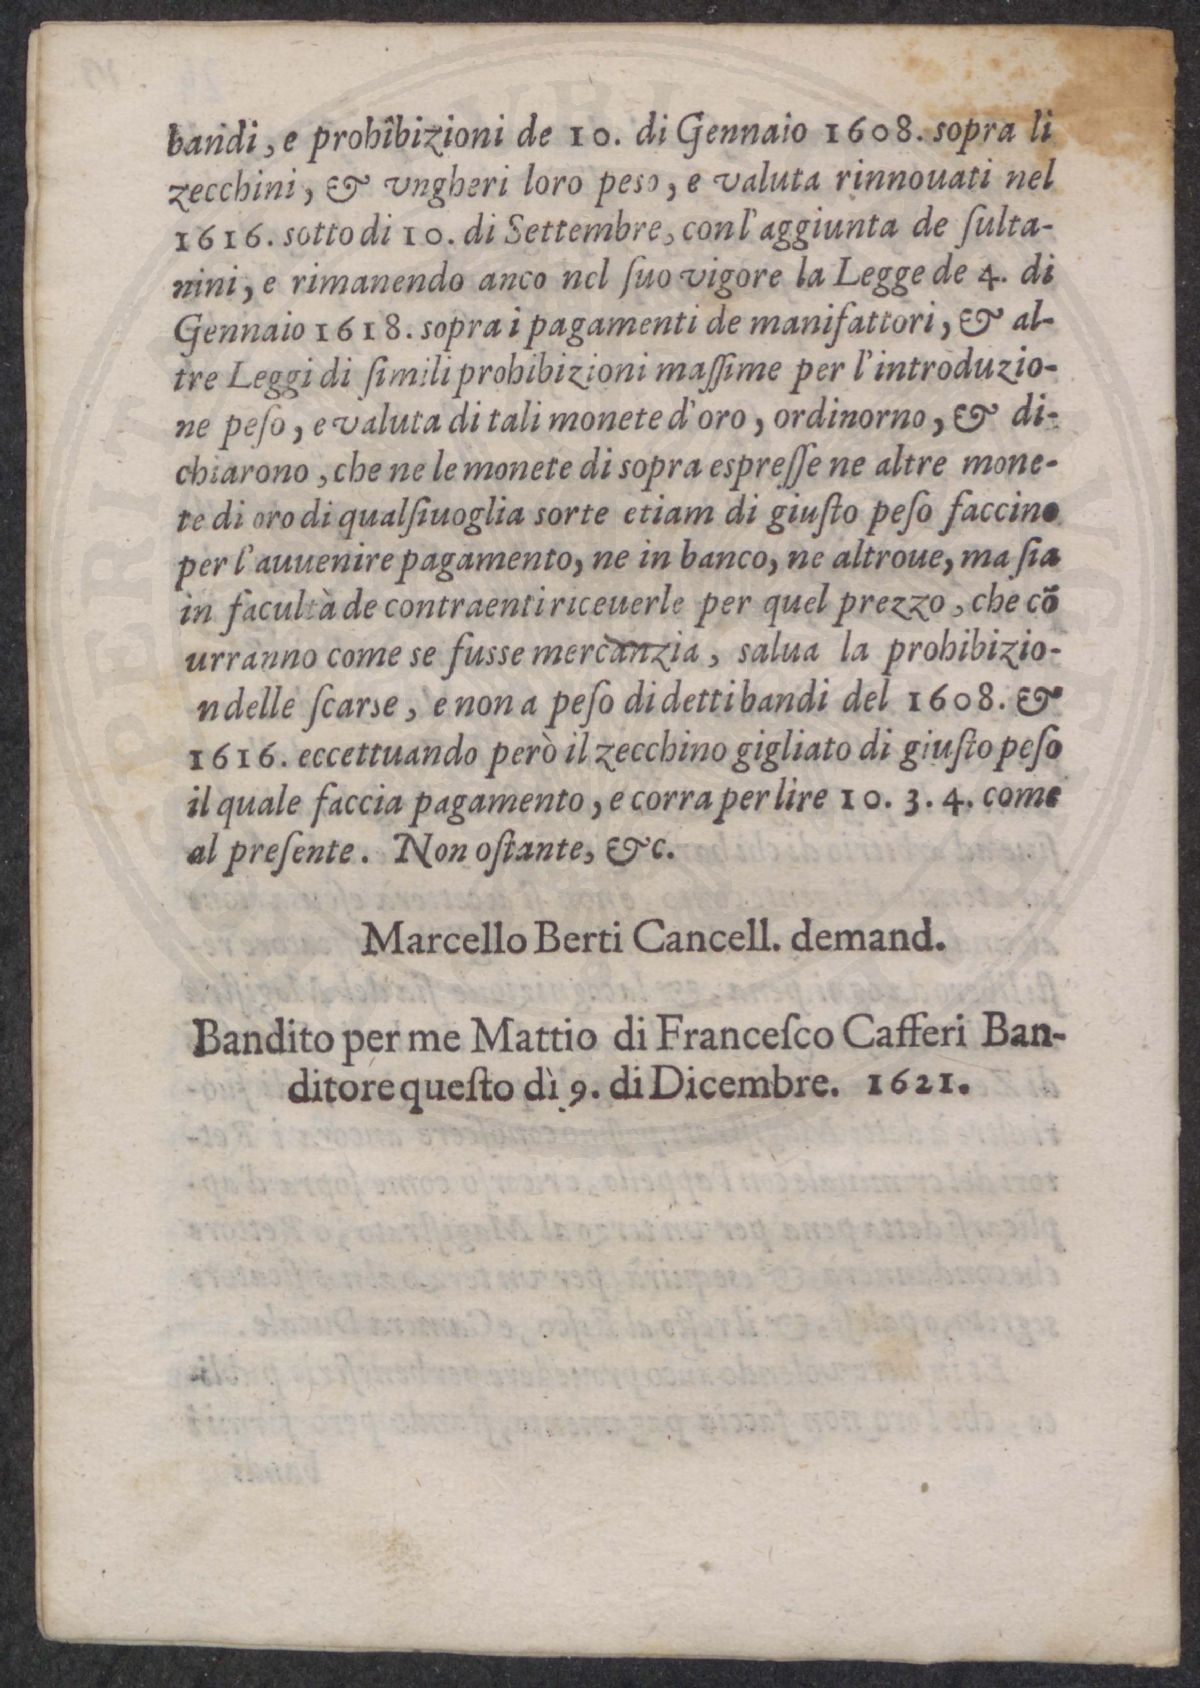 bandi, e prohibizioni de 10. di Gennaio 1608. sopra li
zecchini, & vngheri loro peso, e valuta rinnouati nel
1616. sotto di 10. di Settembre, con l'aggiunta de ſulta-
nini, e rimanendo anco nel ſuo vigore la Legge de 4. di
Gennaio 1618. sopra i pagamenti de manifattori, & al-
tre Leggi di ſimili prohibizioni maſſime per l'introduzio-
ne peſo, e valuta di tali monete d'oro, ordinorno, & di-
chiarono, che ne le monete di sopra espreſſe ne altre mone-
te di oro di qualſiuoglia sorte etiam di giuſto peſo faccino
per l'auuenire pagamento, ne in banco, ne altroue, ma ſia
in facultà de contraenti riceuerle per quel prezzo, che cō
urranno come se fusse mercanzia, salua la prohibizio-
n delle ſcarse, e non a peſo di detti bandi del 1608. &
1616. eccettuando però il zecchino gigliato di giuſto peſo
il quale faccia pagamento, e corra per lire 10. 3. 4. come
al preſente. Non oſtante, &c.
Marcello Berti Cancell. demand.
Bandito per me Mattio di Franceſco Cafferi Ban-
ditore queſto dì 9. di Dicembre. 1621.